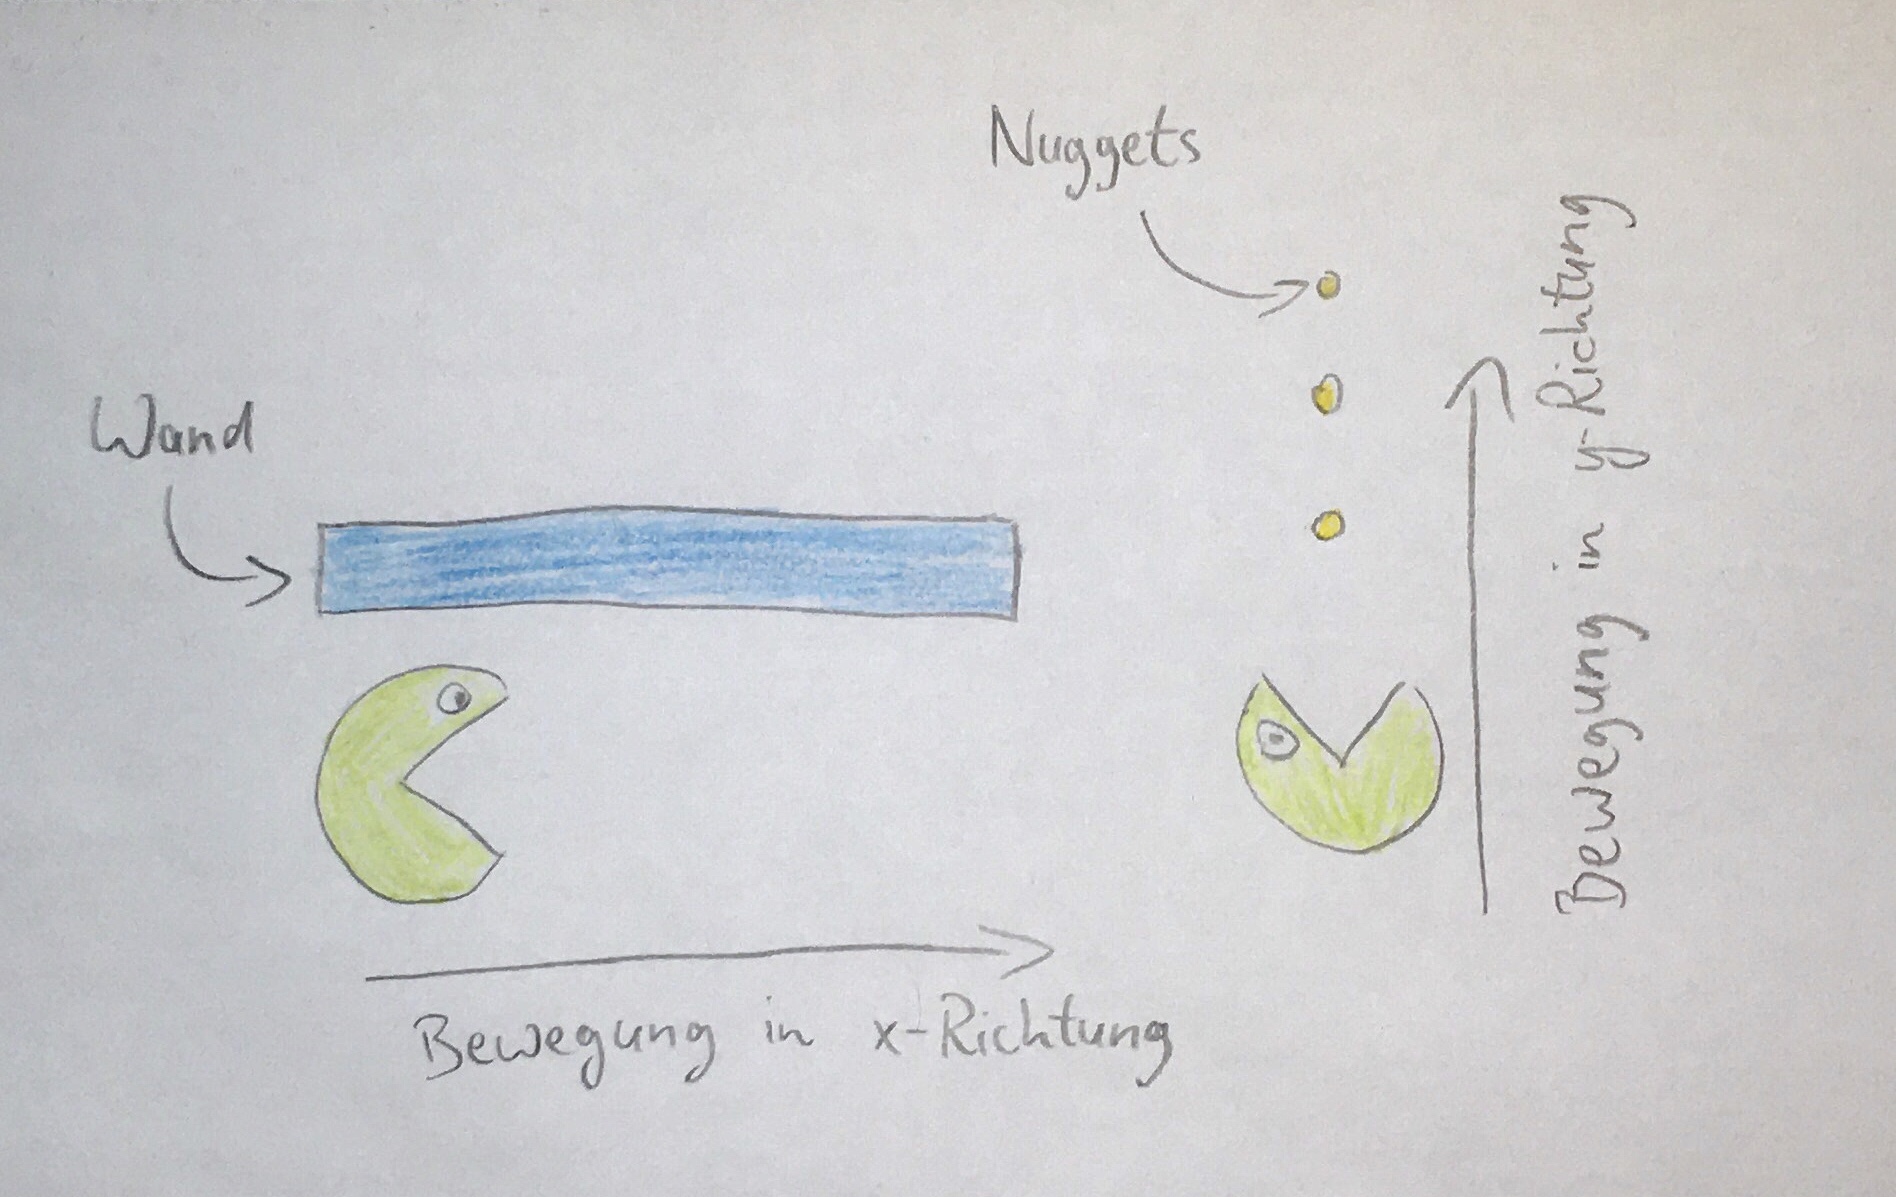 Nuggets
Wand
Bewegung in y-Richtung
Bewegung in x-Richtung